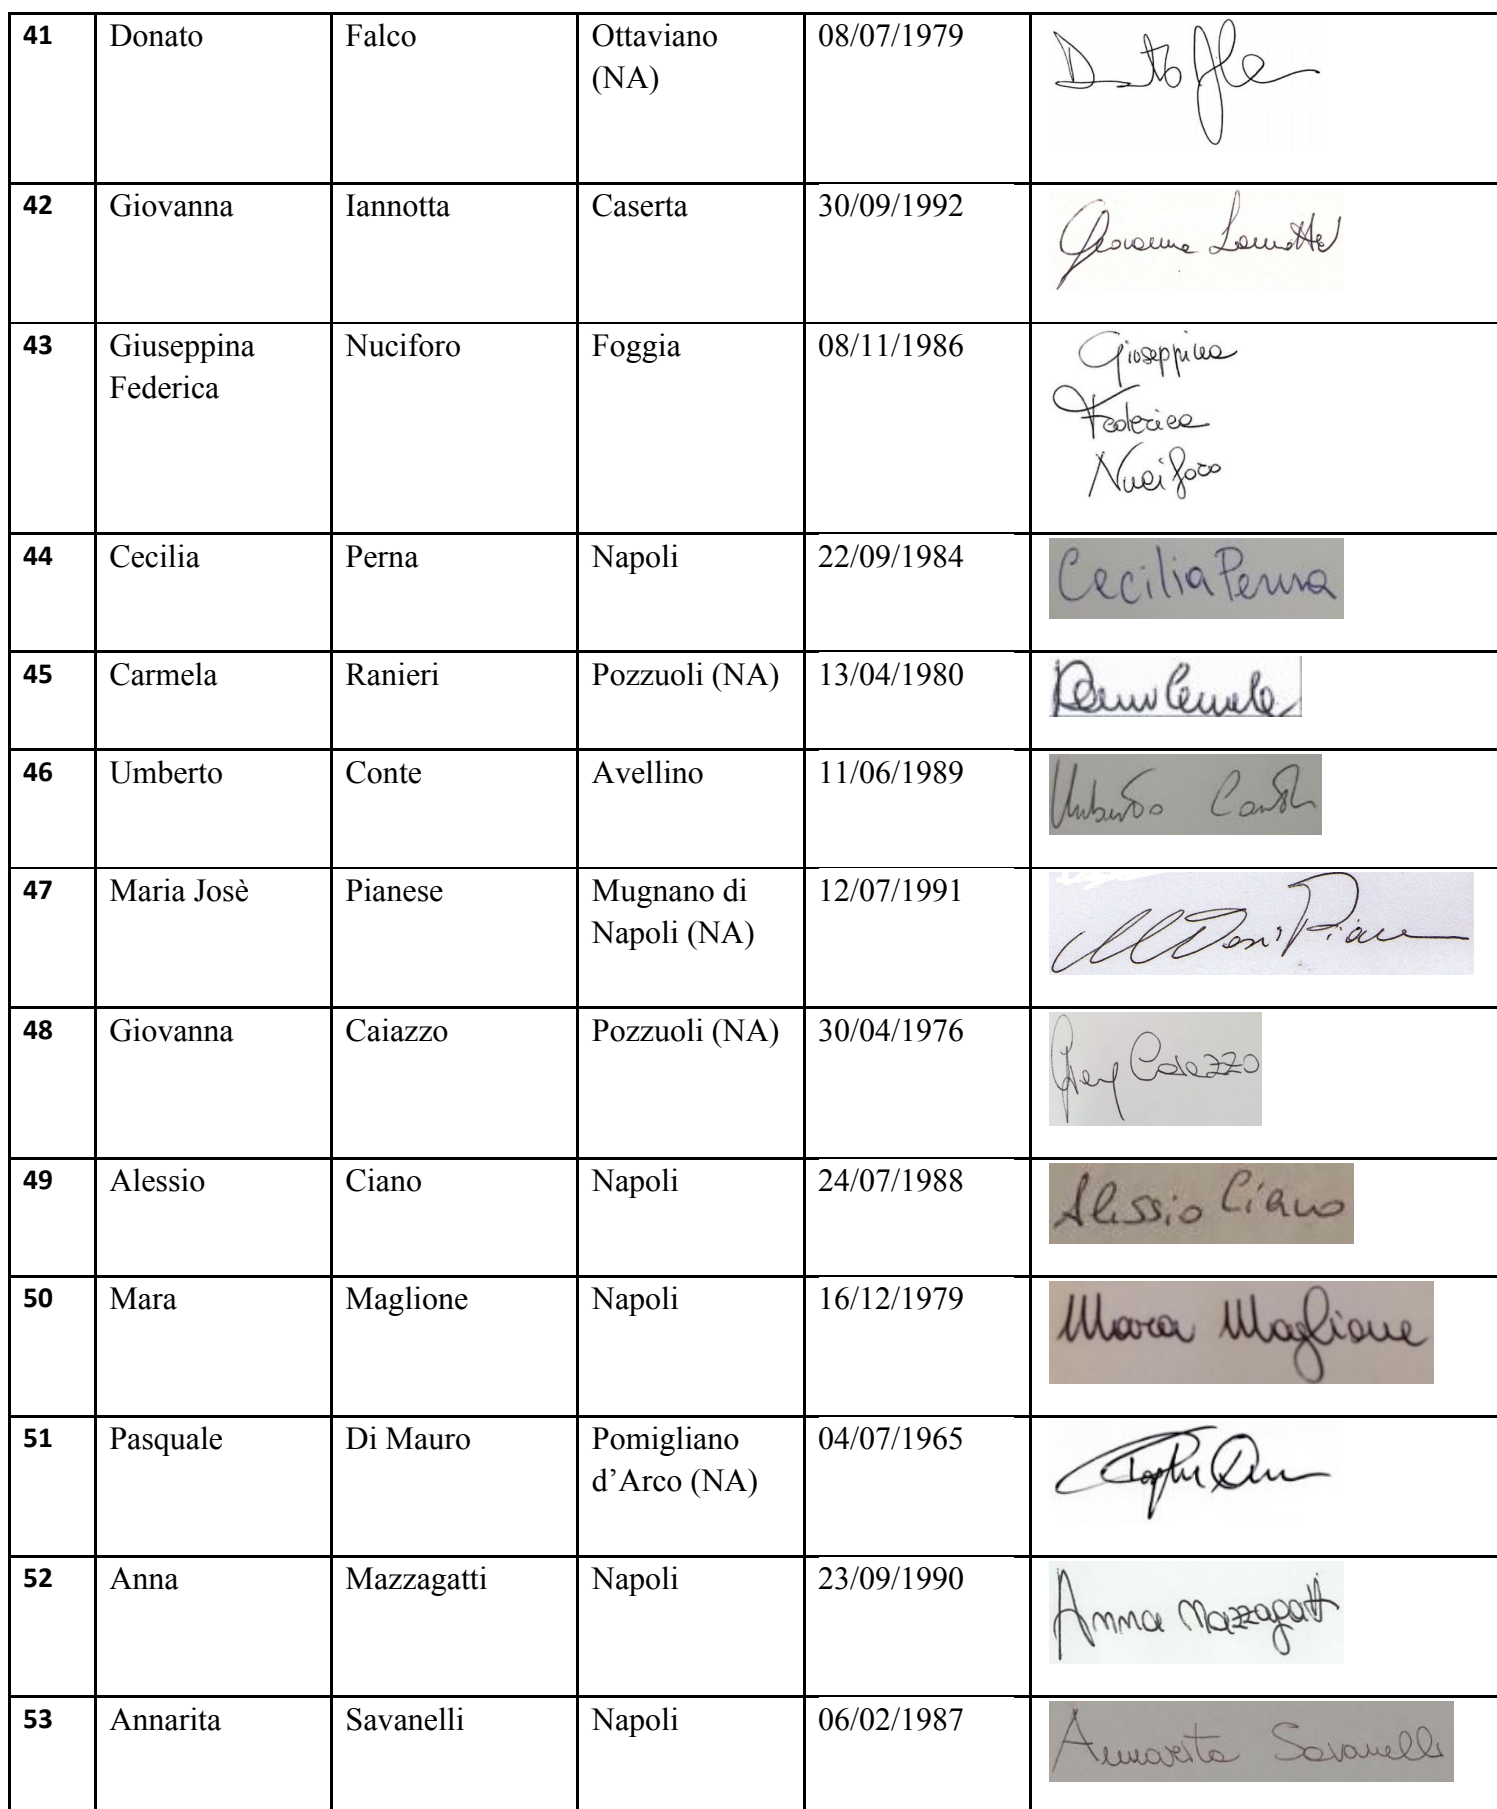 41 Donato Falco Ottaviano 08/07/1979
(NA)
42 Giovanna Iannotta Caserta 30/09/1992 Giovanna Iannotta
43 Giuseppina Nuciforo Foggia 08/11/1986 Giuseppina
Federica Federica
Nuciforo
44 Cecilia Perna Napoli 22/09/1984 Cecilia Perna
45 Carmela Ranieri Pozzuoli (NA) 13/04/1980
46 Umberto Conte Avellino 11/06/1989 Umberto Conte
47 Maria Josè Pianese Mugnano di 12/07/1991
Napoli (NA)
48 Giovanna Caiazzo Pozzuoli (NA) 30/04/1976 Caiazzo
49 Alessio Ciano Napoli 24/07/1988 Alessio Ciano
50 Mara Maglione Napoli 16/12/1979 Mara Maglione
51 Pasquale Di Mauro Pomigliano 04/07/1965
d’Arco (NA)
52 Anna Mazzagatti Napoli 23/09/1990 Anna Mazzagatti
53 Annarita Savanelli Napoli 06/02/1987 Annarita Savanelli